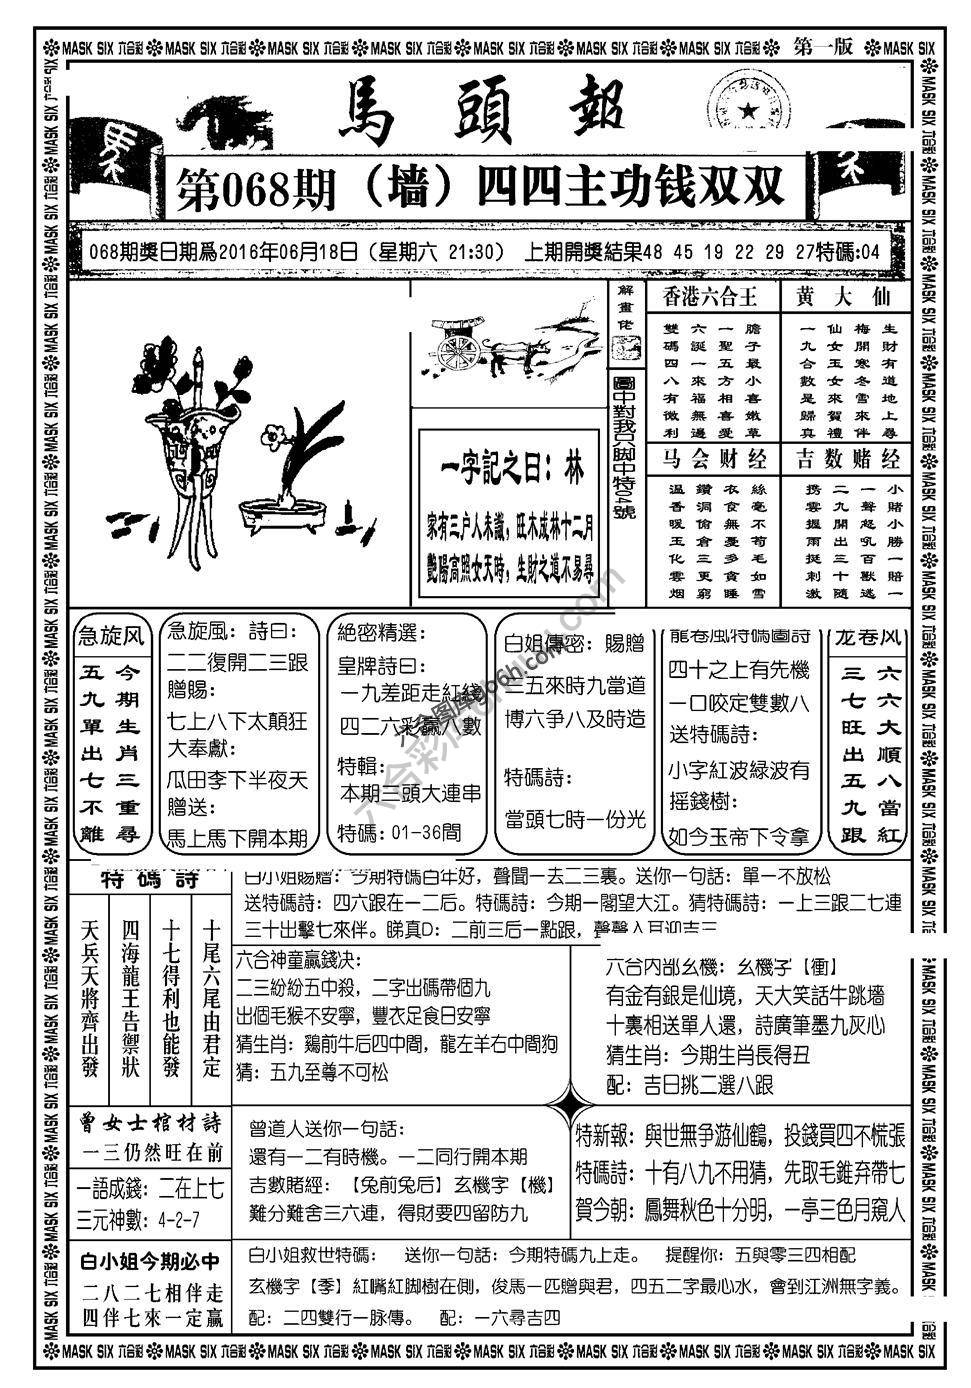 MASK SIX 六合彩 MASK SIX 六合彩 MASK SIX 六合彩 MASK SIX 六合彩 MASK SIX 六合彩 MASK SIX 六合彩 MASK SIX 六合彩 第一版 MASK SIX
馬頭報
第068期（墙）四四主功钱双双
068期獎日期爲2016年06月18日（星期六 21:30） 上期開獎結果48 45 19 22 29 27特碼:04
解畫佬
圖中對我只脚中特04號
一字記之曰：林
家有三户人未識，旺木成林十二月
艷陽高照女天時，生財之道不易尋
香港六合王
膽子最小喜嫩草
一聖五方相喜愛
六誕一來福無邊
雙碼四八有微利
黄大仙
生財有道地上尋
梅開寒冬雪來伴
仙女玉女來賀禮
一九合數是歸真
马会财经
絲毫不苟毛如雪
衣食無憂多貪睡
鑽洞偷倉三更窮
温香暖玉化雲烟
吉数赌经
小賭小勝一賠一
一聲怒吼百獸逃
二九開出三十隨
携雲握雨挺刺激
急旋风
今期生肖三重尋
五九單出七不離
急旋風：詩曰：
二二復開二三跟
贈賜：
七上八下太顛狂
大奉獻：
瓜田李下半夜天
贈送：
馬上馬下開本期
絶密精選：
皇牌詩曰：
一九差距走紅綫
四二六彩赢八數
特輯：
本期三頭大連串
特碼：01-36間
白姐傳密：賜贈
二五來時九當道
博六争八及時造
特碼詩：
當頭七時一份光
龍卷風特碼圖詩
四十之上有先機
一口咬定雙數八
送特碼詩：
小字紅波緑波有
摇錢樹：
如今玉帝下令拿
龙卷风
六六大順八當紅
三七旺出五九跟
特碼詩
十尾六尾由君定
十七得利也能發
四海龍王告禦狀
天兵天將齊出發
白小姐賜贈：今期特碼百年好，聲聞一去二三裏。送你一句話：單一不放松
送特碼詩：四六跟在一二后。特碼詩：今期一閣望大江。猜特碼詩：一上三跟二七連
三十出擊七來伴。睇真D：二前三后一點跟，聲聲入耳迎吉三
六合神童贏錢决：
二三紛紛五中殺，二字出碼帶個九
出個毛猴不安寧，豐衣足食日安寧
猜生肖：鷄前牛后四中間，龍左羊右中間狗
猜：五九至尊不可松
六合内部幺機：幺機字【衝】
有金有銀是仙境，天大笑話牛跳墻
十裏相送單人還，詩廣筆墨九灰心
猜生肖：今期生肖長得丑
配：吉日挑二選八跟
曾女士棺材詩
一三仍然旺在前
一語成錢：二在上七
三元神數：4-2-7
曾道人送你一句話：
還有一二有時機。一二同行開本期
吉數賭經：【兔前兔后】玄機字【機】
難分難舍三六連，得財要四留防九
特新報：與世無争游仙鶴，投錢買四不慌張
特碼詩：十有八九不用猜，先取毛錐弃帶七
賀今朝：鳳舞秋色十分明，一亭三色月窺人
白小姐今期必中
二八二七相伴走
四伴七來一定赢
白小姐救世特碼： 送你一句話：今期特碼九上走。 提醒你：五與零三四相配
玄機字【季】紅嘴紅脚樹在側，俊馬一匹贈與君，四五二字最心水，會到江洲無字義。
配：二四雙行一脉傳。 配：一六尋吉四
MASK SIX 六合彩 MASK SIX 六合彩 MASK SIX 六合彩 MASK SIX 六合彩 MASK SIX 六合彩 MASK SIX 六合彩 MASK SIX 六合彩 MASK SIX 六合彩 MASK SIX